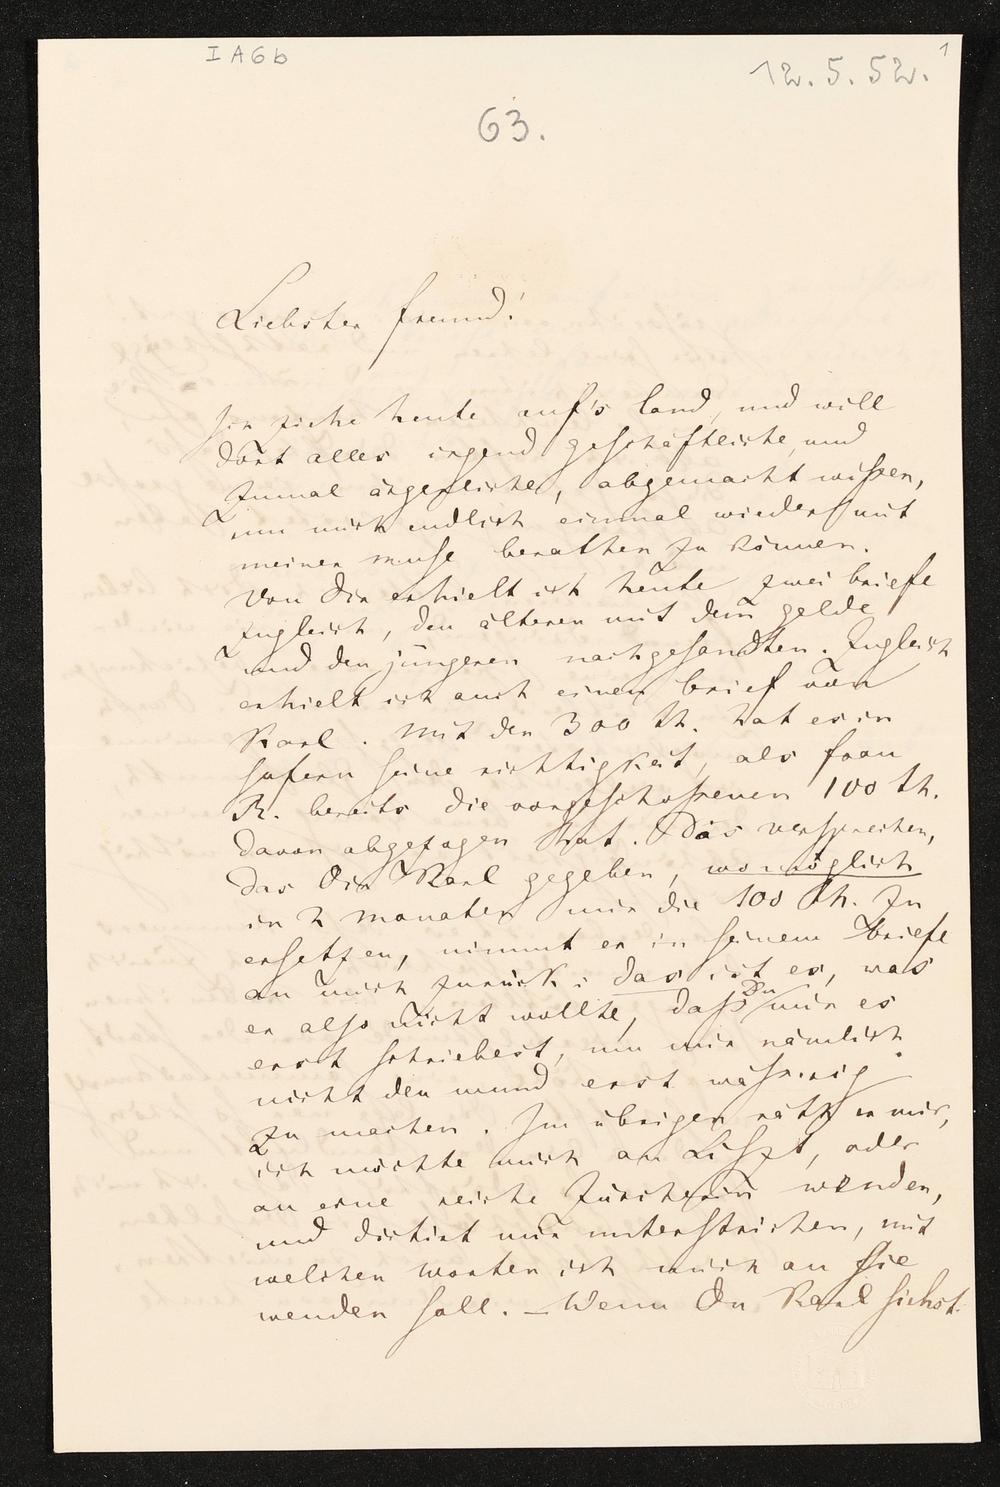 I A 6 b
12. 5. 52.
1
63.
Liebster freund!
Ich ziehe heute auf's land, und will
dort alles irgend geschäftliche, und
zumal ärgerliche, abgemacht wißen,
um mich endlich einmal wieder mit
meiner muse berathen zu können.
Von Dir erhielt ich heute zwei briefe
zugleich, den älteren mit dem gelde
und den jüngeren nachgesandten. Zugleich
erhielt ich auch einen brief von
Karl. Mit den 300 th. hat es in
sofern seine richtigkeit, als frau
R. bereits die vorgeschoßenen 100 th.
davon abgezogen hat. Das versprechen,
das Dir Karl gegeben, womöglich
in 2 monaten mir die 100 th. zu
ersetzen, nimmt er in seinem briefe
an mich zurück: das ist es, was
er also nicht wollte, daß Du mir es
erst schriebest, um mir nämlich
nicht den mund erst wäßerig
zu machen. Im übrigen räth er mir,
ich möchte mich an Liszt, oder
an eine reiche Züricherin wenden,
und dictirt mir unterstrichen, mit
welchen worten ich mich an sie
wenden soll. – Wenn Du Karl siehst